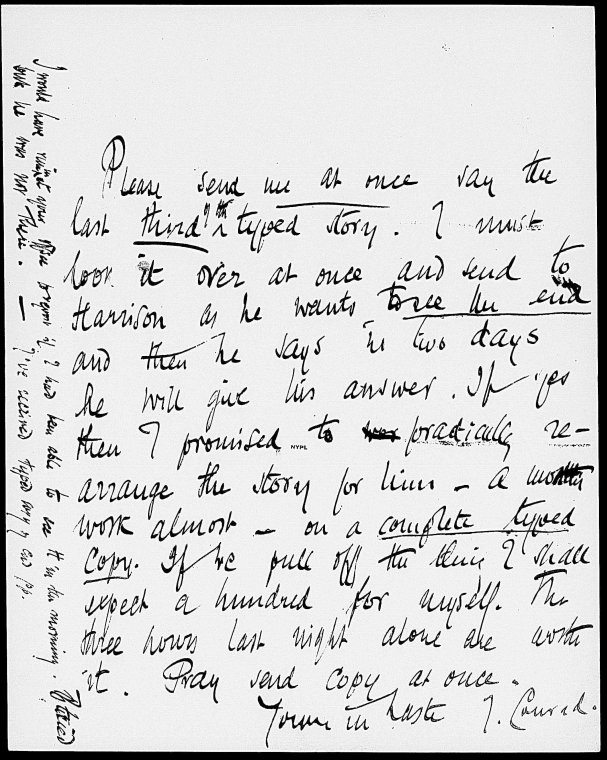 Please send me at once say the
last third of the typed story. I must
look it over at once and send to
Harrison as he wants to see the end
and then he says in two days
he will give his answer. If yes
then I promised to practically re-
NYPL
arrange the story for him – a month
work almost – on a complete typed
copy. If we pull off this thing I shall
expect a hundred for myself. The
three hours last night alone are worth
it. Pray send copy at once.
Yours in haste J. Conrad.
I would have your office if I had been able to see H in the morning.
but he was not there. — I've received typed copy of